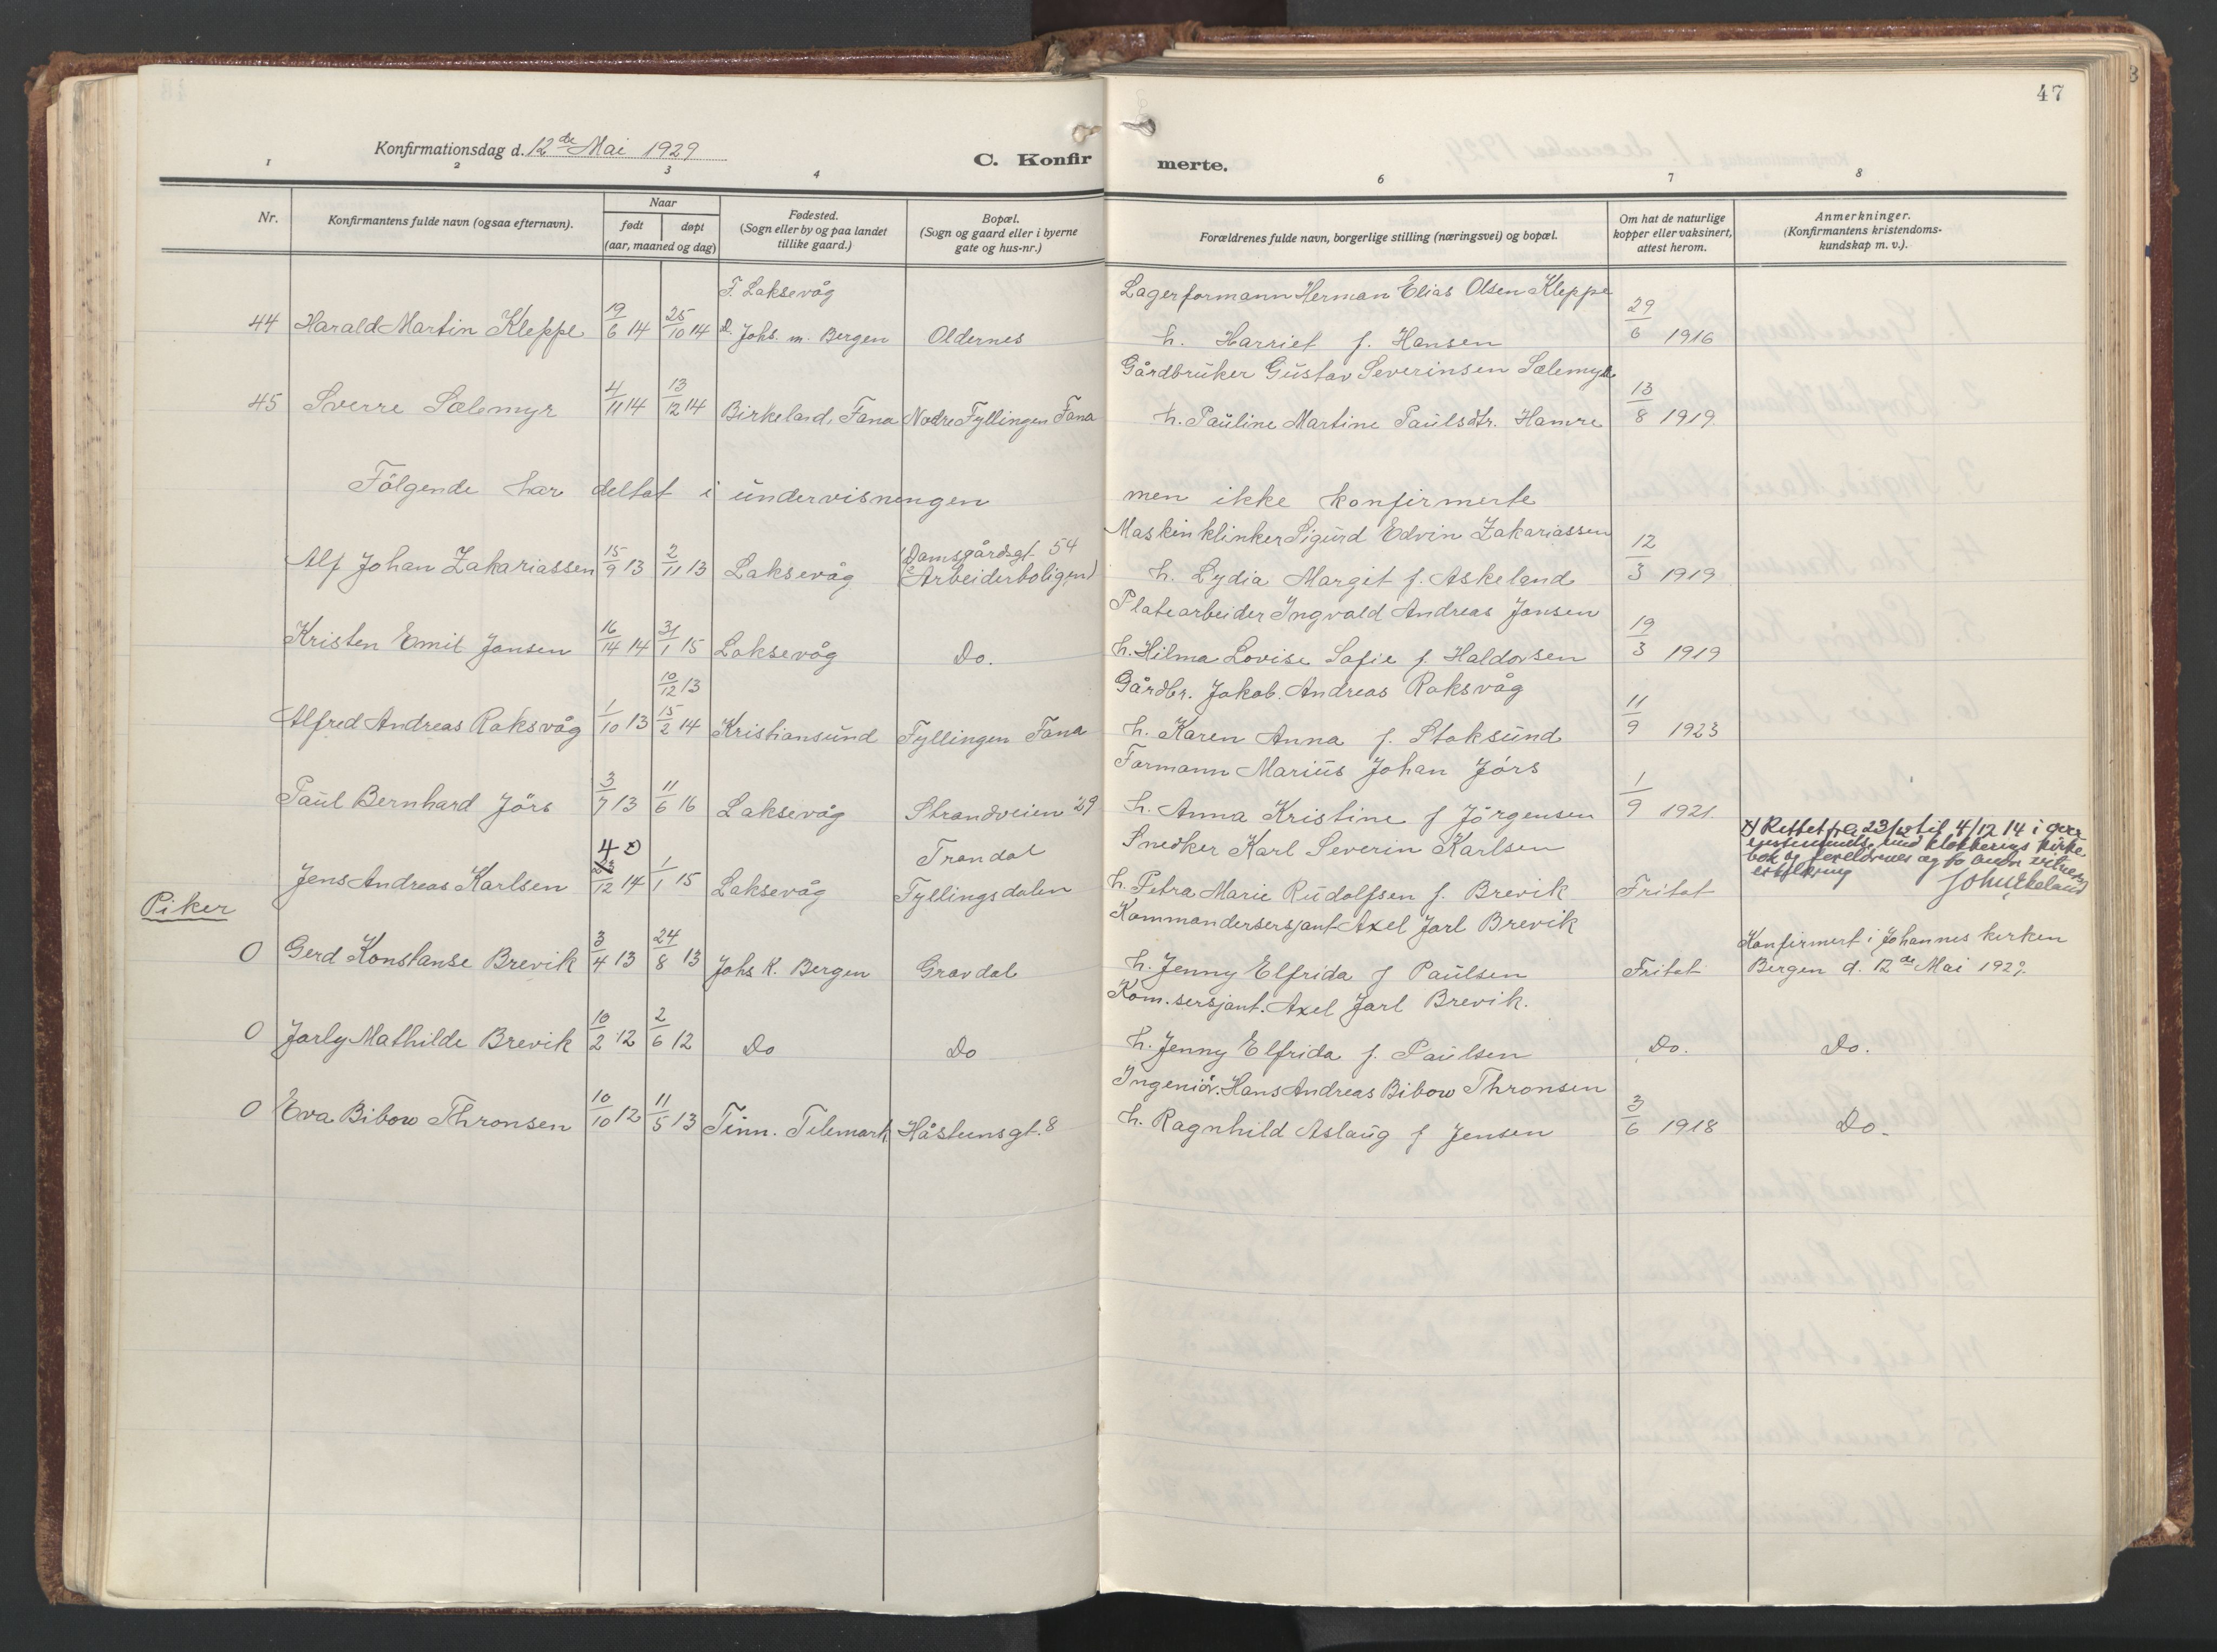 47
Konfirmationsdag d. 12te Mai 1929
C. Konfirmerte.
1 2 3 4 6 7 8
Nr.
Konfirmantens fulde navn (ogsaa efternavn).
Naar
født døpt
(aar, maaned og dag)
Fødested.
(Sogn eller by og paa landet
tillike gaard.)
Bopæl.
(Sogn og gaard eller i byerne
gate og hus-nr.)
Forældrenes fulde navn, borgerlige stilling (næringsvei) og bopæl.
Om hat de naturlige
kopper eller vaksinert,
attest herom.
Anmerkninger.
(Konfirmantens kristendoms-
kundskap m. v.).
F. Laksevåg Lagerformann Herman Elias Olsen Kleppe
44 Harald Martin Kleppe 19/6 14 25/10 14 D. Johs. m. Bergen Oldernes h. Harriet f. Hansen 29/6 1916
Gårdbruker Gustav Severinsen Sælemyr
45 Sverre Sælemyr 4/11 14 13/12 14 Birkeland, Fana Nedre Fyllingen Fana h. Pauline Martine Paulsdtr. Hamre 13/8 1919
Følgende har deltat i undervisningen men ikke konfirmerte
Damsgårdsgt 54 Maskinklinker Sigurd Edvin Zakariassen
Alf Johan Zakariassen 15/9 13 2/11 13 Laksevåg (Arbeiderboligen) h. Lydia Margit f. Askeland 12/3 1919
Platearbeider Ingvald Andreas Jansen
Kristen Emil Jansen 16/14 14 31/1 15 Laksevåg Do. h. Hilma Lovise Sofie f. Haldorsen 19/3 1919
10/12 13 Gårdbr. Jakob Andreas Roksvåg
Alfred Andreas Roksvåg 1/10 13 15/2 14 Kristiansund Fyllingen Fana h. Karen Anna f. Stoksund 11/9 1923
Formann Marius Johan Jörs
Paul Bernhard Jörs 3/7 13 11/6 16 Laksevåg Strandveien 29 h. Anna Kristine f Jörgensen 1/9 1921.
4 x) Trandal Snedker Karl Severin Karlsen
Jens Andreas Karlsen 23/12 14 1/1 15 Laksevåg Fyllingsdalen h. Petra Marie Rudolfsen f. Brevik Fritat
x) Rettet fra 23/12 til 4/12 14 i over
ensstemmelse med klokkerens kirke
bok og foreldrenes og to andre vitners
erklæring
Piker
Kommandersersjant Axel Jarl Brevik
0 Gerd Konstanse Brevik 3/4 13 24/8 13 Johs K. Bergen Gravdal h. Jenny Elfrida f Paulsen Fritat
Konfirmert i Johannes kirken
Bergen d. 12de Mai 1929.
Kom.sersjant. Axel Jarl Brevik.
0 Jarly Mathilde Brevik 10/2 12 2/6 12 Do Do h. Jenny Elfrida f. Paulsen Do. Do.
Ingeniör. Hans Andreas Bibow Thronsen
0 Eva Bibow Thronsen 10/10 12 11/5 13 Tinn. Telemark Håsteinsgt. 8 h. Ragnhild Aslaug f Jensen 3/6 1918 Do.